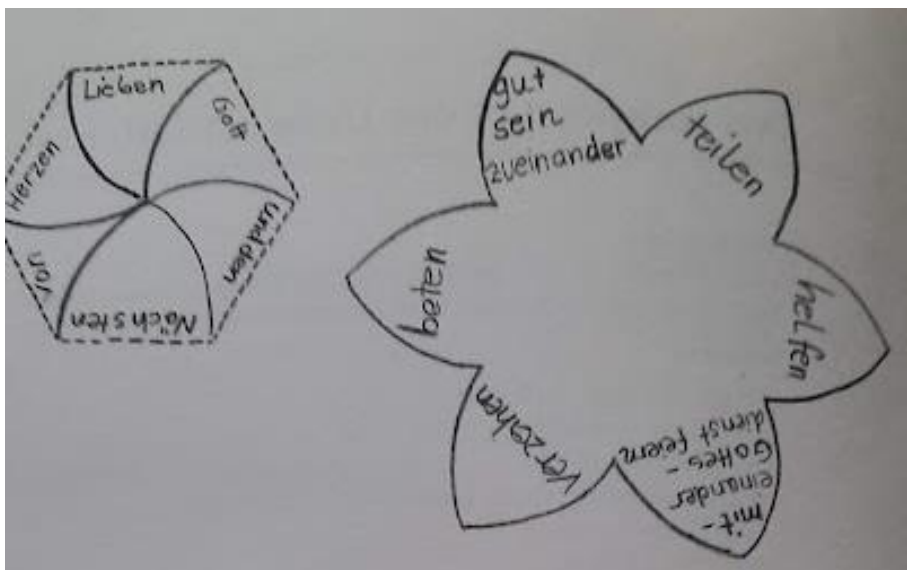 Lieben
Gott
und den
Nächsten
von
Herzen
gut
sein
zueinander
teilen
helfen
mit-
einander
Gottes-
dienst feiern
verzehen
beten